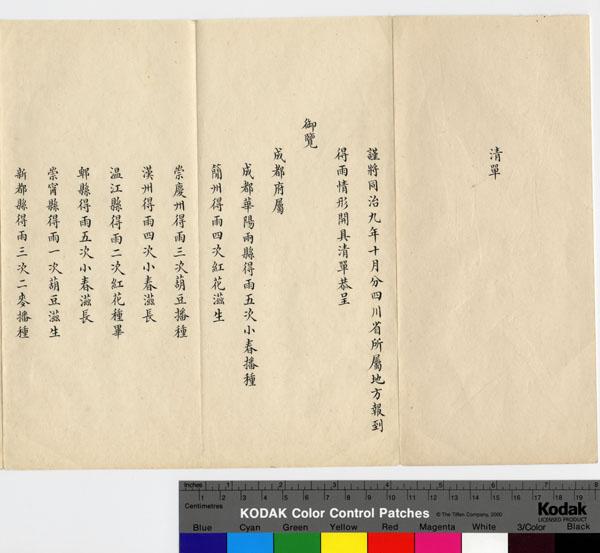 清單
謹將同治九年十月分四川省所屬地方報到
得雨情形開具清單恭呈
御覽
成都府屬
成都華陽兩縣得雨五次小春播種
簡州得雨四次紅花滋生
崇慶州得雨三次葫豆播種
漢州得雨四次小春滋長
温江縣得雨二次紅花種畢
郫縣得雨五次小春滋長
崇甯縣得雨一次葫豆滋生
新都縣得雨三次二麥播種
Inches 1 2 3 4 5 6 7 8
Centimetres 1 2 3 4 5 6 7 8 9 10 11 12 13 14 15 16 17 18 19
KODAK Color Control Patches
© The Tiffen Company, 2000
Kodak
LICENSED PRODUCT
Blue Cyan Green Yellow Red Magenta White 3/Color Black